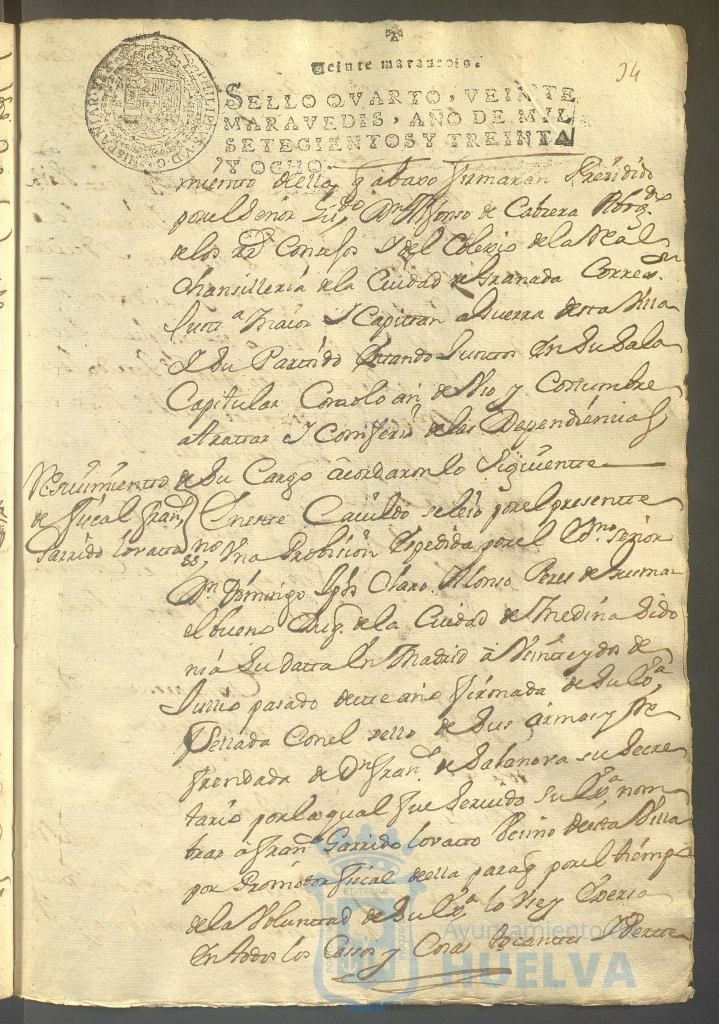 34
Veinte maravedis.
SELLO QVARTO, VEINTE
MARAVEDIS, AÑO DE MIL
SETECIENTOS Y TREINTA
Y OCHO.
miento della q abaxo firmaran Presidido
por el Señor Dn Alfonso de Cabrera Abogdo
de los Rs Consejos I del Colexio de la Real
Chansilleria de la Ciudad de Granada Corregor
Justa Maior I Capitan a Guerra desta Villa
I Su Partido Estando Juntos En Su Sala
Capitular Como lo an de Vso y Costumbre
a tratar I Conferir de las Dependencias
de Su Cargo acordaron lo Siguiente
Reciuimiento
de fiscal Franco
Garrido lovatto
En este Cauildo se leio por el presente
ssno Vna Probision Espedida por el Exmo Señor
Dn Domingo Claro Alonso Peres de Gusman
el bueno Duq de la Ciudad de Medina Sido
nia Su Data En Madrid a Veinte y dos de
Jullio pasado deste año firmada de Su Exa
Sellada Con el sello de Sus Armas y Re
frendada de Dn Franco de Salanova su Secre
tario por la qual fue Seruido Su Exa nom
brar a Franco Garrido lovatto Vecino desta Villa
por Promotor fiscal della para q por el tiempo
de la Voluntad de Su Exa lo Vse y Exersa
En todos los Cassos y Cosas tocantes
Ayuntamiento de
HUELVA